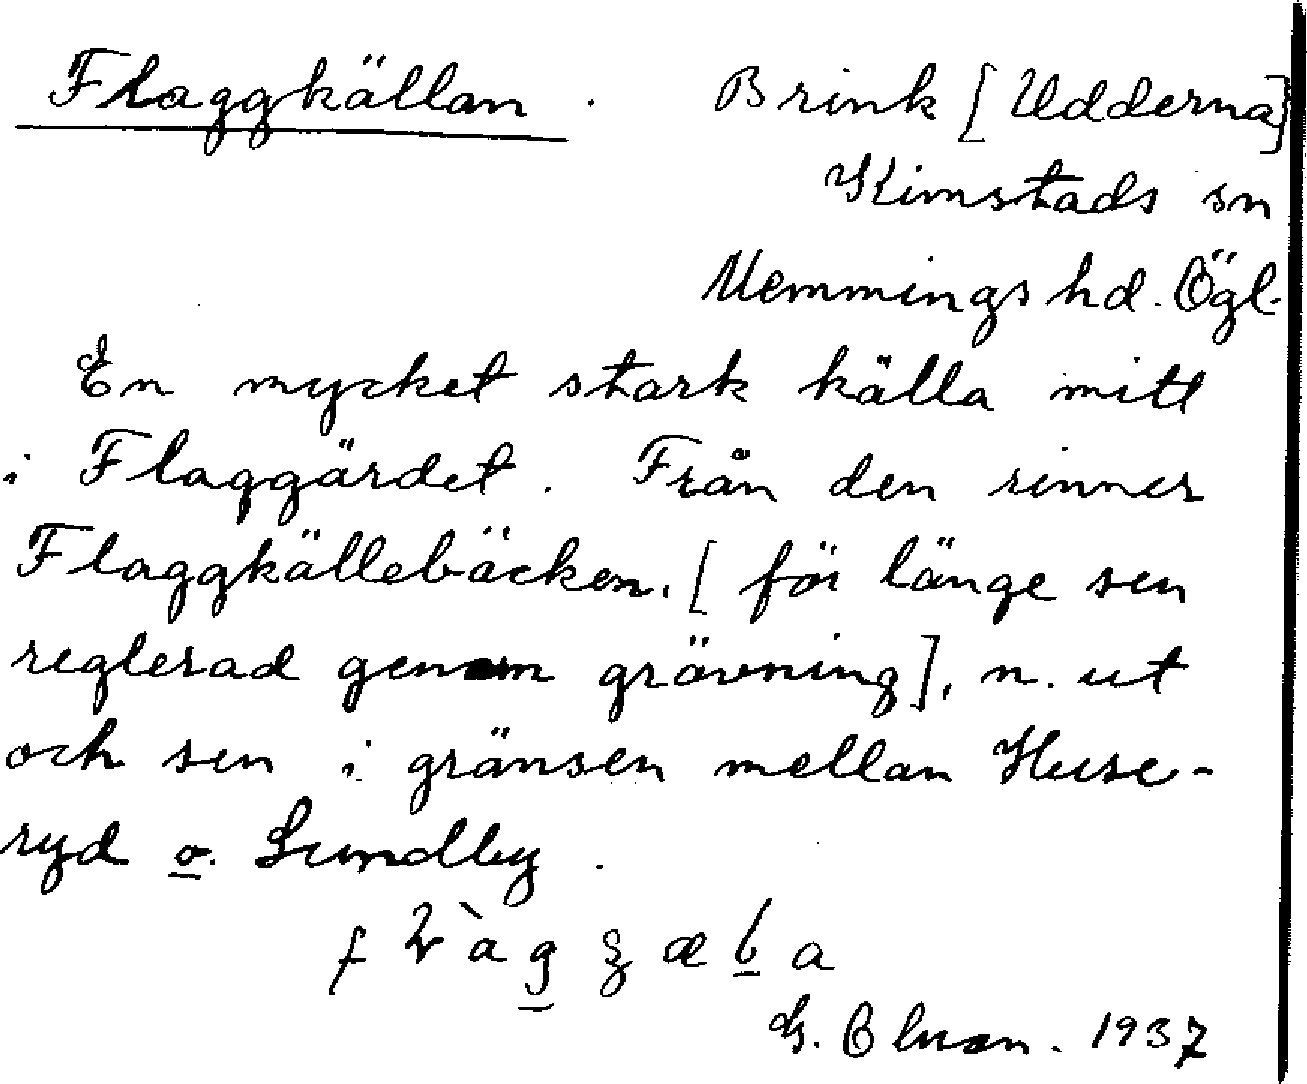 Flaggkällan. Brink [Udderna]
Kimstads sn
Memmings hd. Ögl.
En mycket stark källa mitt
i Flaggärdet. Från den rinner
Flaggkällebäcken, [för länge sen
reglerad genom grävning], n. ut
och sen i gränsen mellan Huse-
ryd o. Lundby.
G. 1937